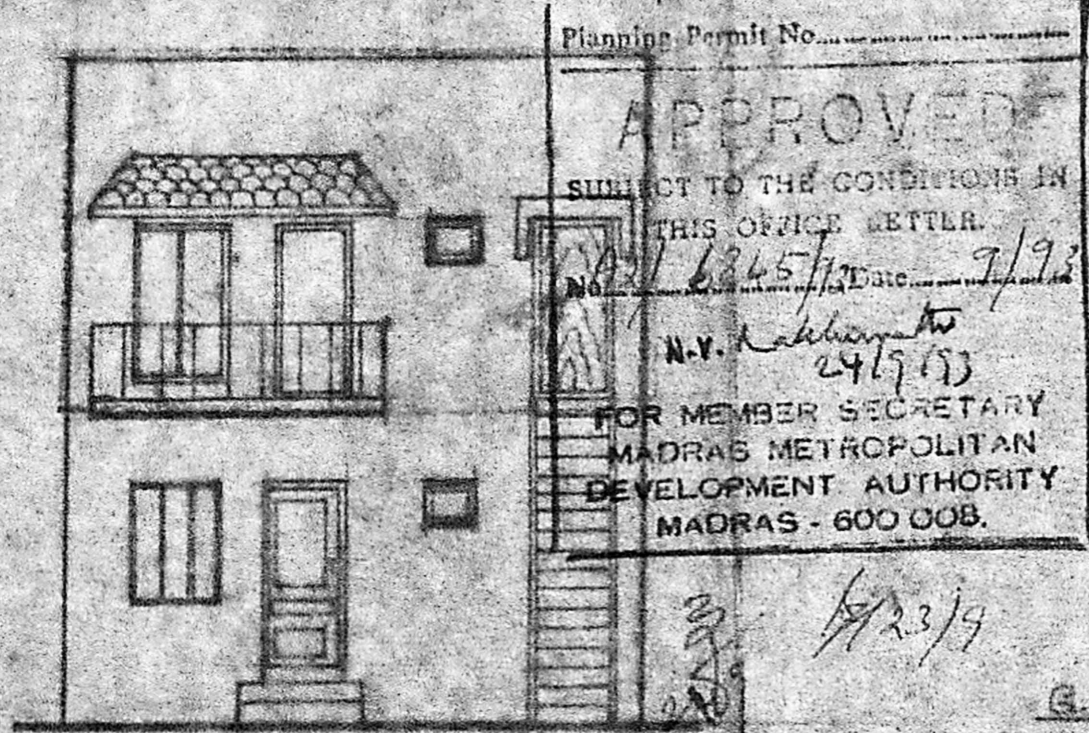 Planning Permit No
APPROVED
SUBJECT TO THE CONDITIONS IN
THIS OFFICE LETTER.
No. Date 9/93
N.V.
24/9/93
FOR MEMBER SECRETARY
MADRAS METROPOLITAN
DEVELOPMENT AUTHORITY
MADRAS - 600 008.
23/9
G.